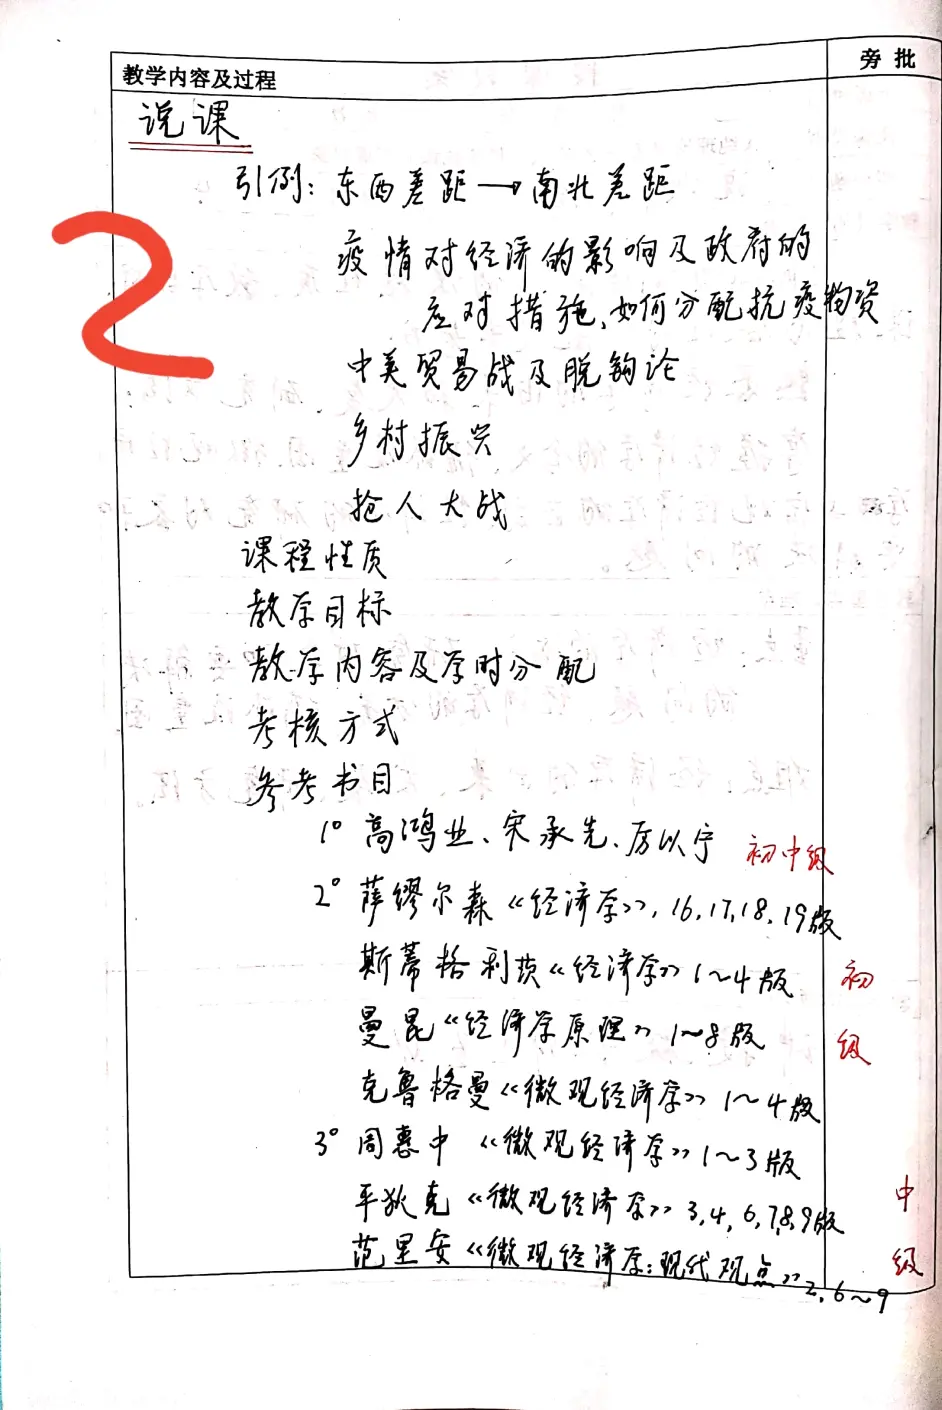 教学内容及过程 旁批
说课
2
引例：东西差距→南北差距
疫情对经济的影响及政府的
应对措施、如何分配抗疫物资
中美贸易战及脱钩论
乡村振兴
抢人大战
课程性质
教学目标
教学内容及学时分配
考核方式
参考书目
1° 高鸿业、宋承先、厉以宁 初中级
2° 萨缪尔森《经济学》，16,17,18,19版
斯蒂格利茨《经济学》1～4版 初
曼昆《经济学原理》1～8版 级
克鲁格曼《微观经济学》1～4版
3° 周惠中《微观经济学》1～3版
平狄克《微观经济学》3,4,6,7,8,9版 中
范里安《微观经济学：现代观点》2,6～9 级